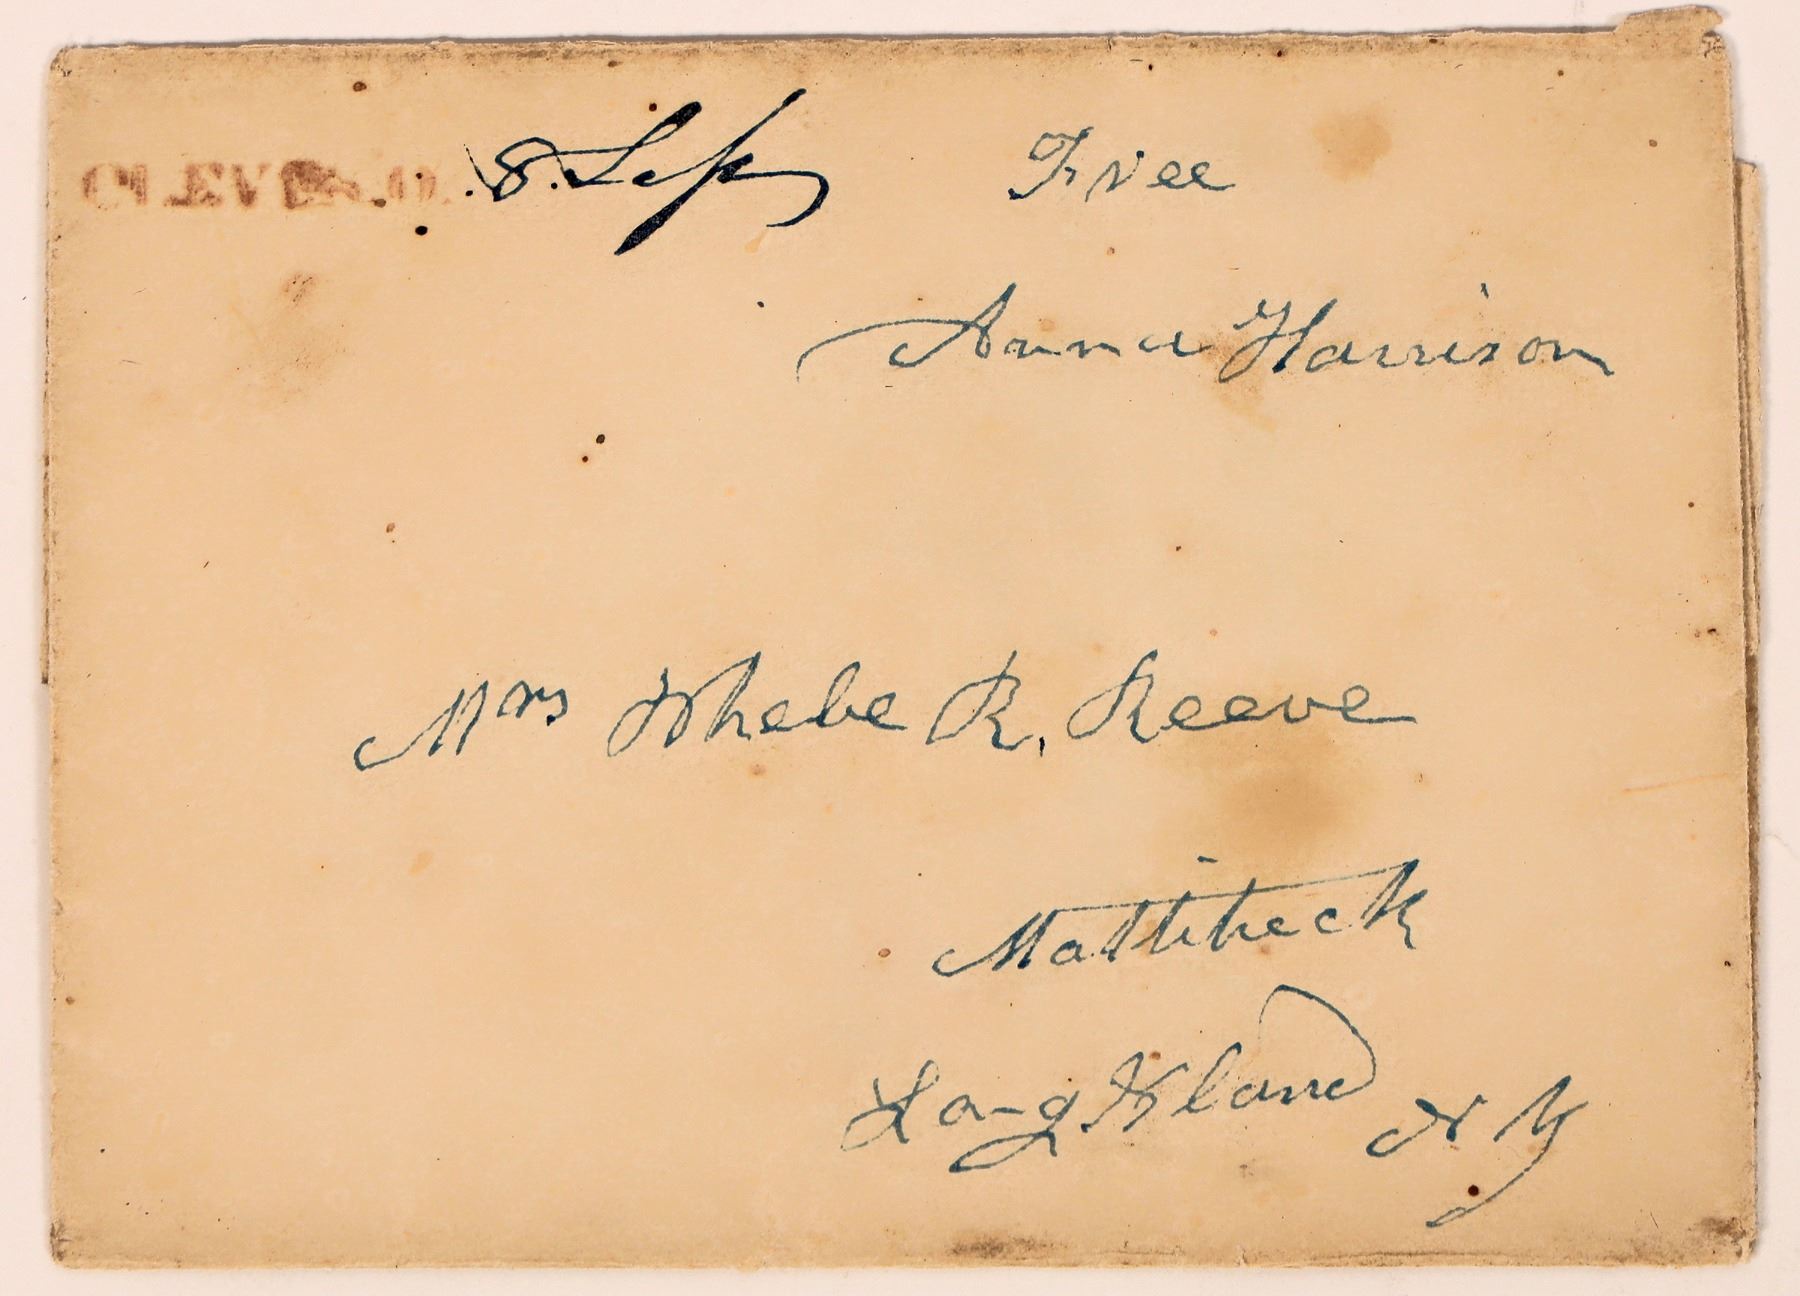 CLEVES.O. 8. Sep Free
Anna Harrison
Mrs Phebe R. Reeve
Mattiteck
Long Island N Y